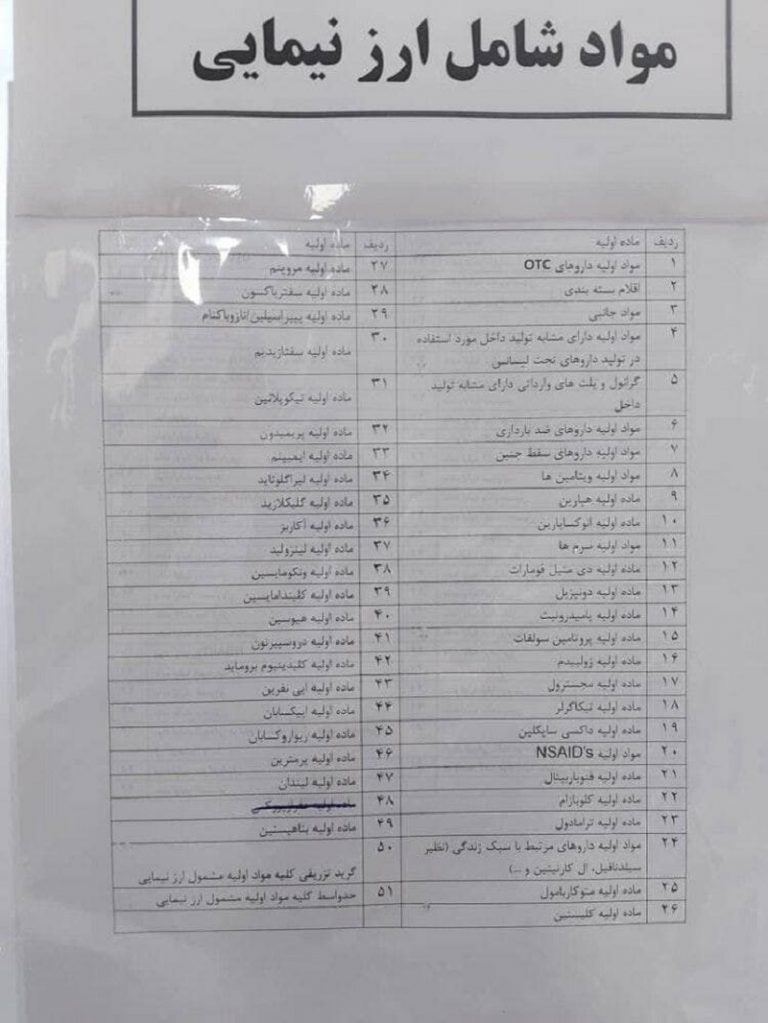 مواد شامل ارز نیمایی
ردیف
ماده اولیه
۱
مواد اولیه داروهای OTC
۲
اقلام بسته بندی
۳
مواد جانبی
۴
مواد اولیه دارای مشابه تولید داخل مورد استفاده
در تولید داروهای تحت لیسانس
۵
گرانول و پلت های وارداتی دارای مشابه تولید
داخل
۶
مواد اولیه داروهای ضد بارداری
۷
مواد اولیه داروهای سقط جنین
۸
مواد اولیه ویتامین ها
۹
ماده اولیه هپارین
۱۰
ماده اولیه انوکساپارین
۱۱
مواد اولیه سرم ها
۱۲
ماده اولیه دی متیل فومارات
۱۳
ماده اولیه دونپزیل
۱۴
ماده اولیه پامیدرونیت
۱۵
ماده اولیه پروتامین سولفات
۱۶
ماده اولیه زولپیدم
۱۷
ماده اولیه مجسترول
۱۸
ماده اولیه تیکاگرلر
۱۹
ماده اولیه داکسی سایکلین
۲۰
مواد اولیه NSAID's
۲۱
ماده اولیه فنوباربیتال
۲۲
ماده اولیه کلوبازام
۲۳
ماده اولیه ترامادول
۲۴
مواد اولیه داروهای مرتبط با سبک زندگی (نظیر
سیلدنافیل، ال کارنیتین و ...)
۲۵
ماده اولیه متوکاربامول
۲۶
ماده اولیه کلیستین
ردیف
ماده اولیه
۲۷
ماده اولیه مروپنم
۲۸
ماده اولیه سفتریاکسون
۲۹
ماده اولیه پیپراسیلین/تازوباکتام
۳۰
ماده اولیه سفتازیدیم
۳۱
ماده اولیه تیکوپلانین
۳۲
ماده اولیه پریمیدون
۳۳
ماده اولیه ایمیپنم
۳۴
ماده اولیه لیراگلوتاید
۳۵
ماده اولیه گلیکلازید
۳۶
ماده اولیه آکاربز
۳۷
ماده اولیه لینزولید
۳۸
ماده اولیه ونکومایسین
۳۹
ماده اولیه کلیندامایسین
۴۰
ماده اولیه هیوسین
۴۱
ماده اولیه دروسپیرنون
۴۲
ماده اولیه کلیدینیوم بروماید
۴۳
ماده اولیه اپی نفرین
۴۴
ماده اولیه اپیکسابان
۴۵
ماده اولیه ریواروکسابان
۴۶
ماده اولیه پرمترین
۴۷
ماده اولیه لیندان
۴۸
ماده اولیه
۴۹
ماده اولیه بتاهیستین
۵۰
گرید تزریقی کلیه مواد اولیه مشمول ارز نیمایی
۵۱
حدواسط کلیه مواد اولیه مشمول ارز نیمایی